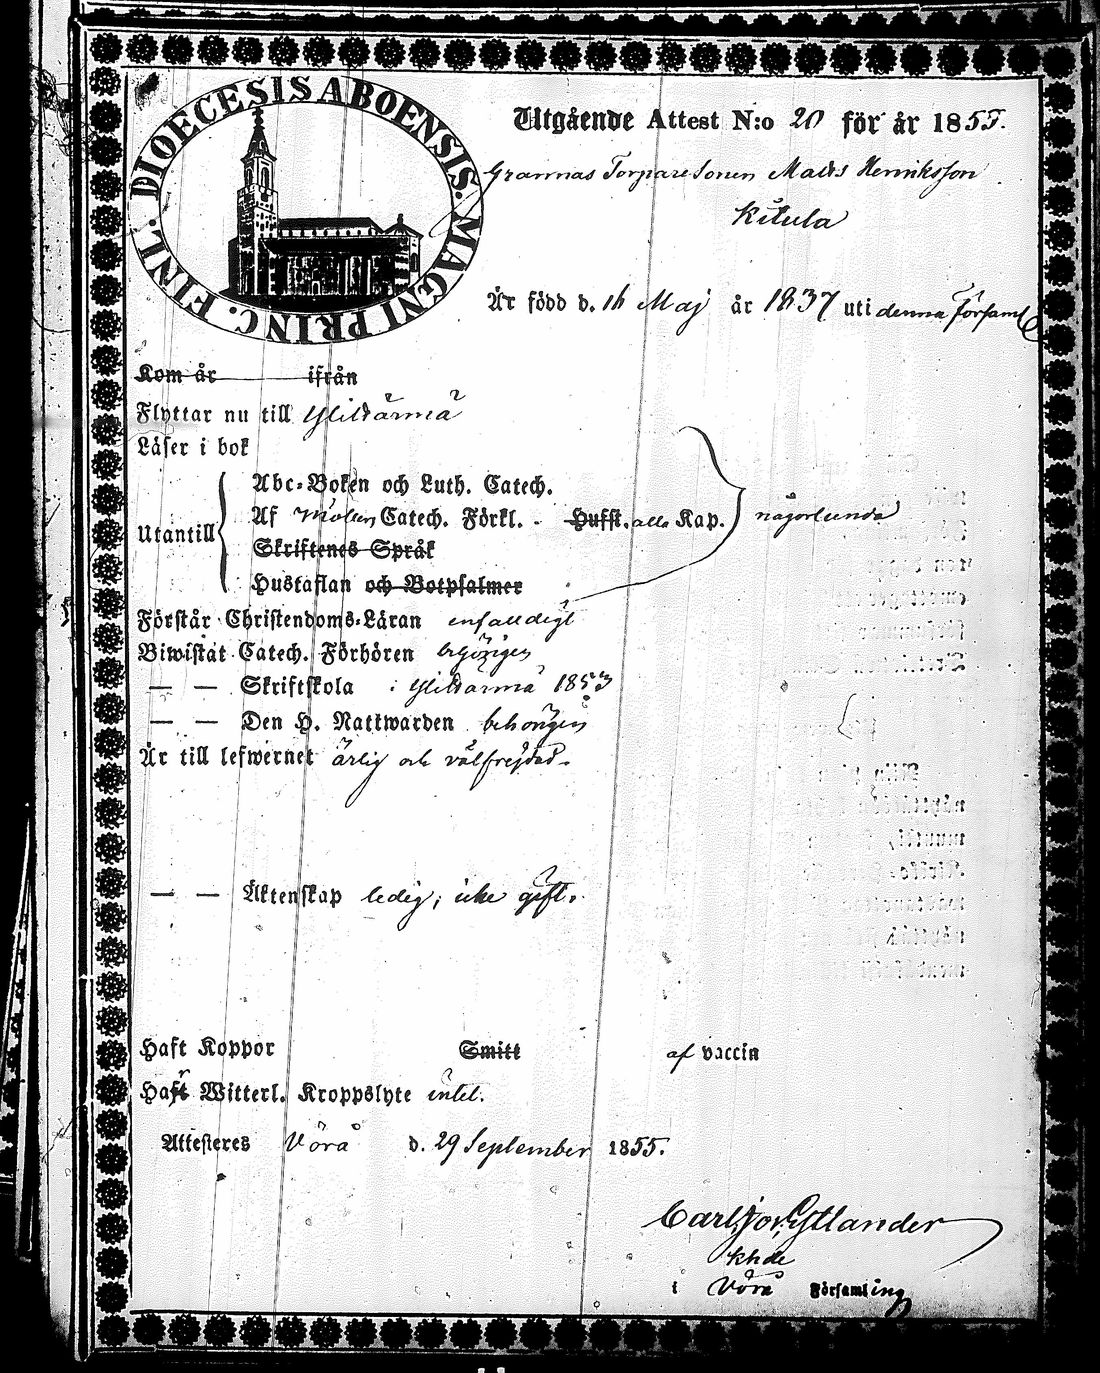 DIOECESIS ABOENSIS. MAGNI PRINC. FINL.
Utgående Attest N:o 20 för år 1855.
Grannas Torparesonen Mats Henriksson
Kitula
Är född d. 16 Maj år 1837 uti denna Församl
Kom år ifrån
Flyttar nu till Ylihärmä
Läser i bok
Abc-Boken och Luth. Catech.
Utantill
Af Catech. Förkl. - Husst. alla Kap. någorlunda
Skriftenes Språk
Hustaflan och Botpsalmer
Förstår Christendoms-Läran enfaldigt
Biwistat Catech. Förhören behörigen
— — Skriftskola i Ylihärmä 1853
— — Den H. Nattwarden behörigen
Är till lefwernet ärlig och välfrejdad.
— — Äktenskap ledig; icke gift.
Haft Koppor Smitt af vaccin
Haft Witterl. Kroppslyte intet.
Attesteres Vörå d. 29 September 1855.
Carl Estlander
khde
i Vörå Församling